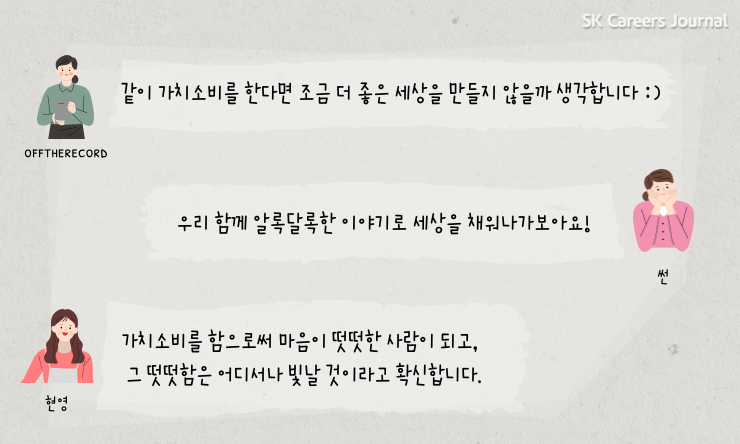 SK Careers Journal
같이 가치소비를 한다면 조금 더 좋은 세상을 만들지 않을까 생각합니다 :)
OFFTHERECORD
우리 함께 알록달록한 이야기로 세상을 채워나가보아요!
썬
가치소비를 함으로써 마음이 떳떳한 사람이 되고,
그 떳떳함은 어디서나 빛날 것이라고 확신합니다.
현영